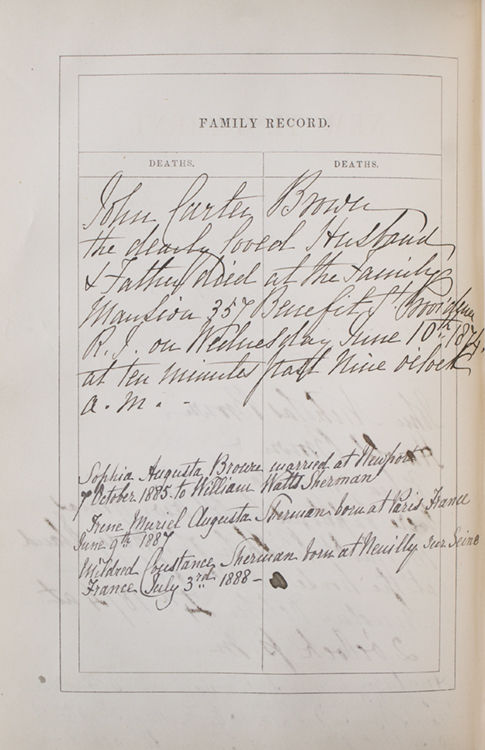 FAMILY RECORD.
DEATHS. DEATHS.
John Carter Brown
the dearly loved Husband
& Father died at the Family
Mansion 357 Benefit St Providence
R.I. on Wednesday June 10th 1874.
at ten minutes past Nine oclock
a.m. -
Sophia Augusta Browne married at Newport
7 October 1885 to William Watts Sherman
Irene Muriel Augusta Sherman born at Paris France
June 9th 1887
Mildred Constance Sherman born at Neuilly sur Seine
France July 3rd 1888 -